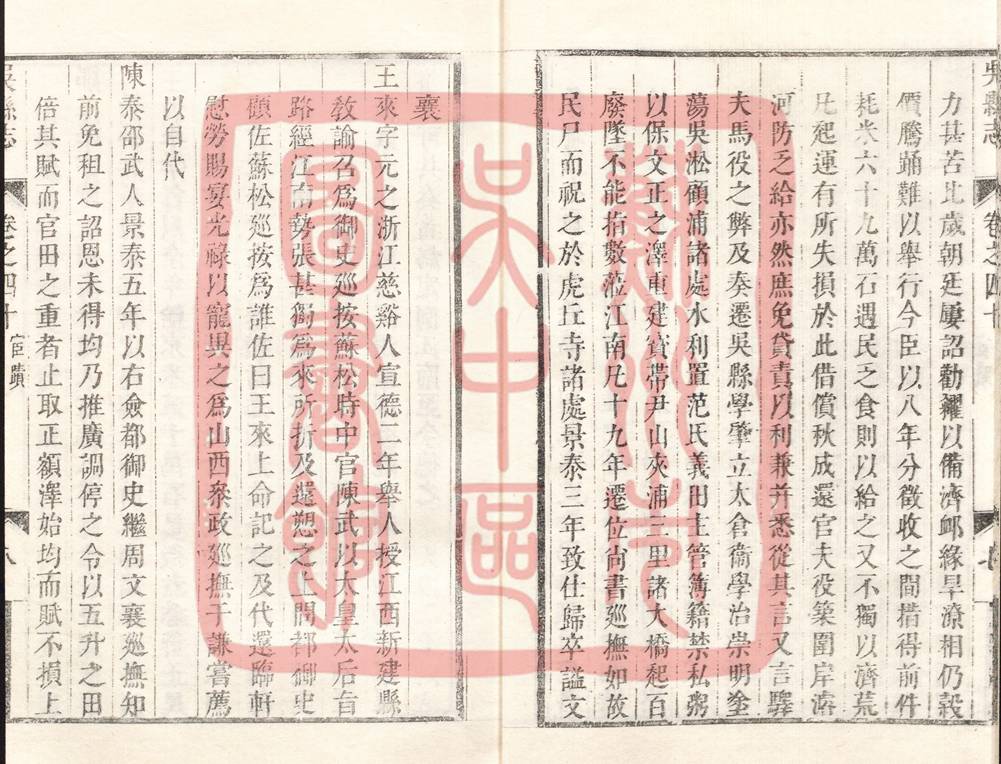 吳縣志
卷之四十
力甚苦比歲朝廷屢詔勸糴以備濟卹緣旱潦相仍穀
價騰踊難以舉行今臣以八年分徵收之間措得前件
耗米六十九萬石遇民乏食則以給之又不獨以濟荒
凡起運有所失損於此借償秋成還官夫役築圍岸濬
河防乏給亦然庶免貸責以利兼并悉從其言又言驛
夫馬役之弊及奏遷吳縣學肇立太倉衞學治崇明塗
蕩吳淞顧浦諸處水利置范氏義田主管簿籍禁私粥
以保文正之澤重建寳帶尹山夾浦三里諸大橋起百
廢墜不能指數蒞江南凡十九年遷位尚書廵撫如故
民尸而祝之於虎丘寺諸處景泰三年致仕歸卒諡文
襄
王來字元之浙江慈谿人宣德二年舉人授江西新建縣
敎諭召爲御史廵按蘇松時中官陳武以太皇太后旨
路經江南勢張甚獨爲來所折及還愬之上問都御史
顧佐蘇松廵按爲誰佐曰王來上命記之及代還臨軒
慰勞賜宴光祿以寵異之爲山西叅政廵撫于謙嘗薦
以自代
陳泰邵武人景泰五年以右僉都御史繼周文襄廵撫知
前免租之詔恩未得均乃推廣調停之令以五升之田
倍其賦而官田之重者止取正額澤始均而賦不損上
吳縣志
卷之四十
宦蹟
八
蘇州市
吳中區
圖書館